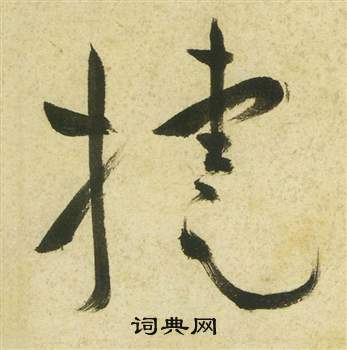 捷
词典网